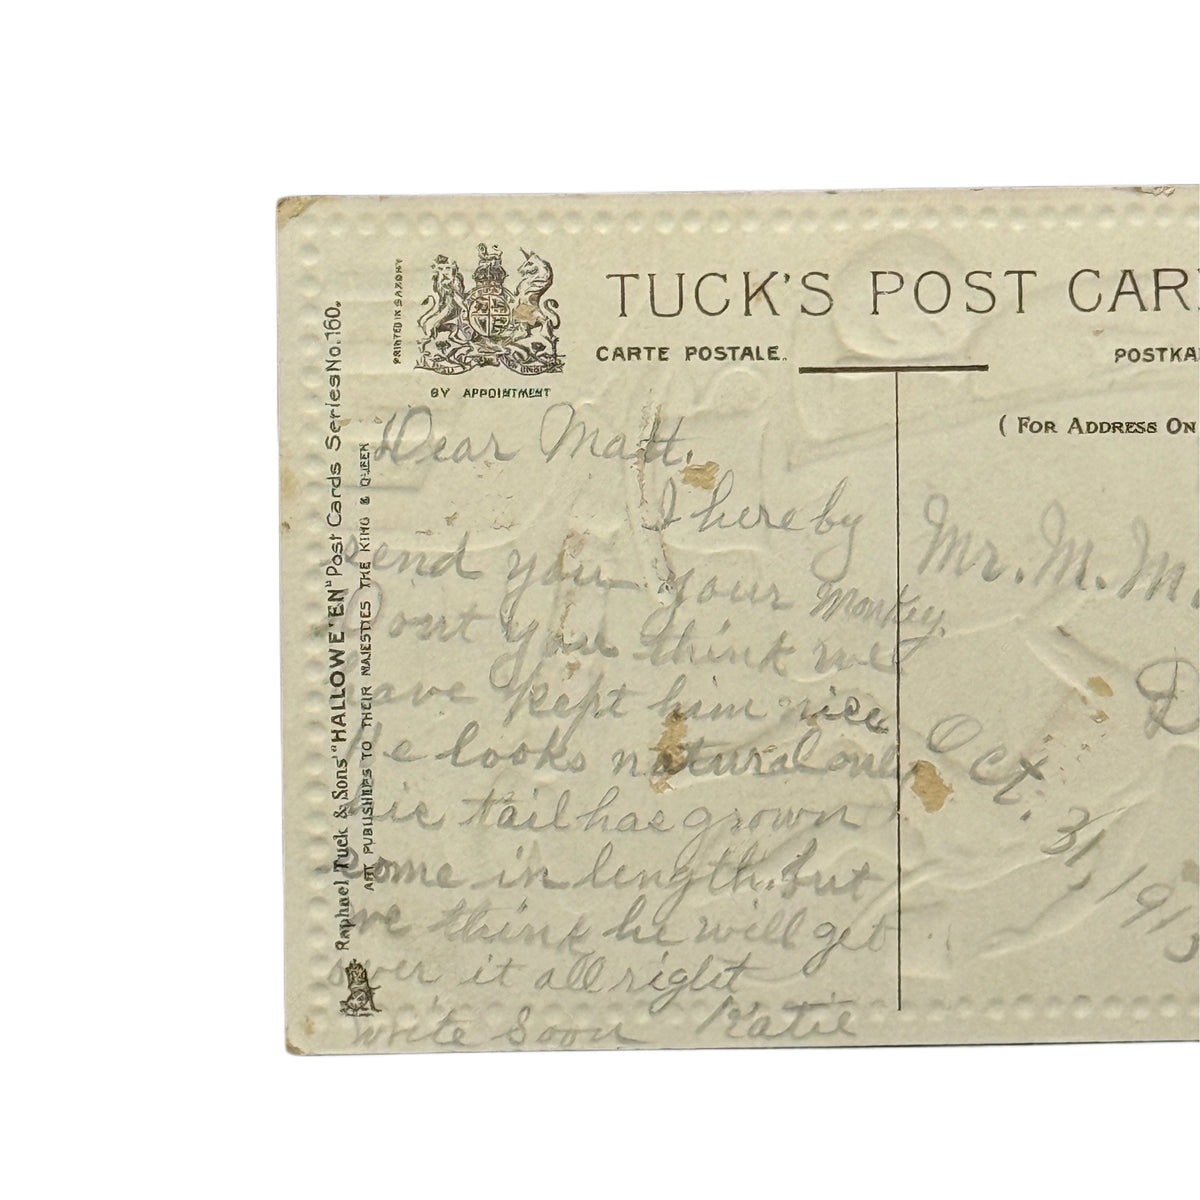 TUCK'S POST CAR
CARTE POSTALE.
POSTKA
(FOR ADDRESS ON
PRINTED IN SAXONY
BY APPOINTMENT
Raphael Tuck & Sons' "HALLOWE'EN" Post Cards Series No. 160.
ART PUBLISHERS TO THEIR MAJESTIES THE KING & QUEEN
Dear Matt.
I hereby
send you your Monkey.
Dont you think we
have kept him nice
He looks natural only
his tail has grown
some in length. but
we think he will get
over it all right
write soon Katie
Mr. M. M
D
Oct. 31, 1913